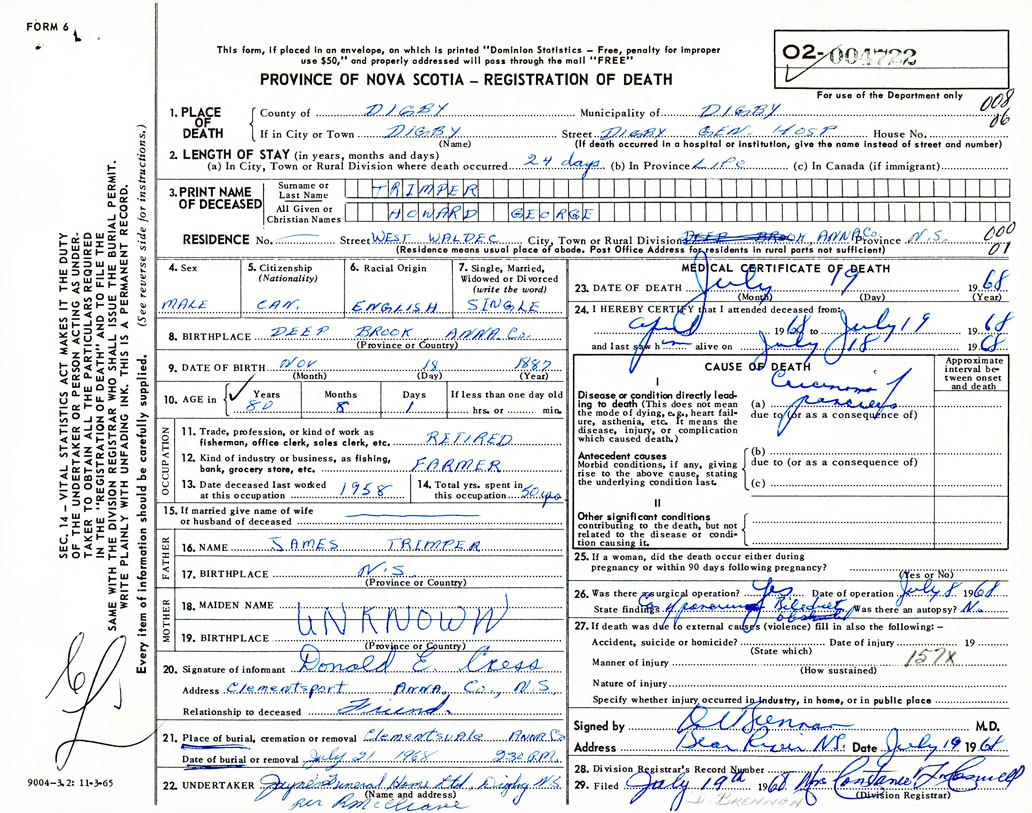 FORM 6
This form, if placed in an envelope, on which is printed "Dominion Statistics – Free, penalty for improper
use $50," and properly addressed will pass through the mail "FREE"
PROVINCE OF NOVA SCOTIA – REGISTRATION OF DEATH
02-004722
For use of the Department only
008
06
1. PLACE OF DEATH
County of DIGBY Municipality of DIGBY
If in City or Town DIGBY Street DIGBY GEN. HOSP House No.
(Name) (If death occurred in a hospital or institution, give the name instead of street and number)
2. LENGTH OF STAY (in years, months and days)
(a) In City, Town or Rural Division where death occurred 24 days (b) In Province LIFE (c) In Canada (if immigrant)
3. PRINT NAME OF DECEASED
Surname or Last Name TRIMPER
All Given or Christian Names HOWARD GEORGE
RESIDENCE No. Street WEST WALDEC City, Town or Rural Division DEEP BROOK, ANNA Co. Province N.S.
(Residence means usual place of abode. Post Office Address for residents in rural parts not sufficient)
000
01
4. Sex MALE
5. Citizenship (Nationality) CAN.
6. Racial Origin ENGLISH
7. Single, Married, Widowed or Divorced (write the word) SINGLE
8. BIRTHPLACE DEEP BROOK ANNA Co.
(Province or Country)
9. DATE OF BIRTH NOV 18 1887
(Month) (Day) (Year)
10. AGE in Years 80 Months 8 Days 1 If less than one day old hrs. or min.
OCCUPATION
11. Trade, profession, or kind of work as fisherman, office clerk, sales clerk, etc. RETIRED
12. Kind of industry or business, as fishing, bank, grocery store, etc. FARMER
13. Date deceased last worked at this occupation 1958
14. Total yrs. spent in this occupation 50 yrs
15. If married give name of wife or husband of deceased
FATHER
16. NAME JAMES TRIMPER
17. BIRTHPLACE N.S.
(Province or Country)
MOTHER
18. MAIDEN NAME
UNKNOWN
19. BIRTHPLACE
(Province or Country)
20. Signature of informant Donald E. Cress
Address Clementsport ANNA. Co., N.S.
Relationship to deceased Friend.
21. Place of burial, cremation or removal Clementsvale ANNA Co
Date of burial or removal July 21 1968 2:30 P.M.
22. UNDERTAKER Jayne's Funeral Home Ltd, Digby N.S.
(Name and address)
per
MEDICAL CERTIFICATE OF DEATH
23. DATE OF DEATH July 19 1968
(Month) (Day) (Year)
24. I HEREBY CERTIFY that I attended deceased from:
April 1968 to July 19 1968
and last saw him alive on July 18 1968
CAUSE OF DEATH
Approximate interval between onset and death
I
Disease or condition directly leading to death (This does not mean the mode of dying, e.g., heart failure, asthenia, etc. It means the disease, injury, or complication which caused death.)
(a) Carcinoma of pancreas
due to (or as a consequence of)
Antecedent causes
Morbid conditions, if any, giving rise to the above cause, stating the underlying condition last.
(b)
due to (or as a consequence of)
(c)
II
Other significant conditions
contributing to the death, but not related to the disease or condition causing it.
25. If a woman, did the death occur either during
pregnancy or within 90 days following pregnancy?
(Yes or No)
26. Was there a surgical operation? Yes Date of operation July 8 1968
State findings Ca of pancreas Was there an autopsy? No
27. If death was due to external causes (violence) fill in also the following: –
Accident, suicide or homicide? Date of injury 19
(State which)
Manner of injury 157X
(How sustained)
Nature of injury
Specify whether injury occurred in industry, in home, or in public place
Signed by M.D.
Address Bear River N.S. Date July 19 1968
28. Division Registrar's Record Number
29. Filed July 19th 1968 Mrs Constance
(Division Registrar)
D. BRENNAN
SEC. 14 – VITAL STATISTICS ACT MAKES IT THE DUTY
OF THE UNDERTAKER OR PERSON ACTING AS UNDER-
TAKER TO OBTAIN ALL THE PARTICULARS REQUIRED
IN THE "REGISTRATION OF DEATH" AND TO FILE THE
SAME WITH THE DIVISION REGISTRAR WHO SHALL ISSUE THE BURIAL PERMIT.
WRITE PLAINLY WITH UNFADING INK. THIS IS A PERMANENT RECORD.
Every item of information should be carefully supplied. (See reverse side for instructions.)
9004-3.2: 11-3-65